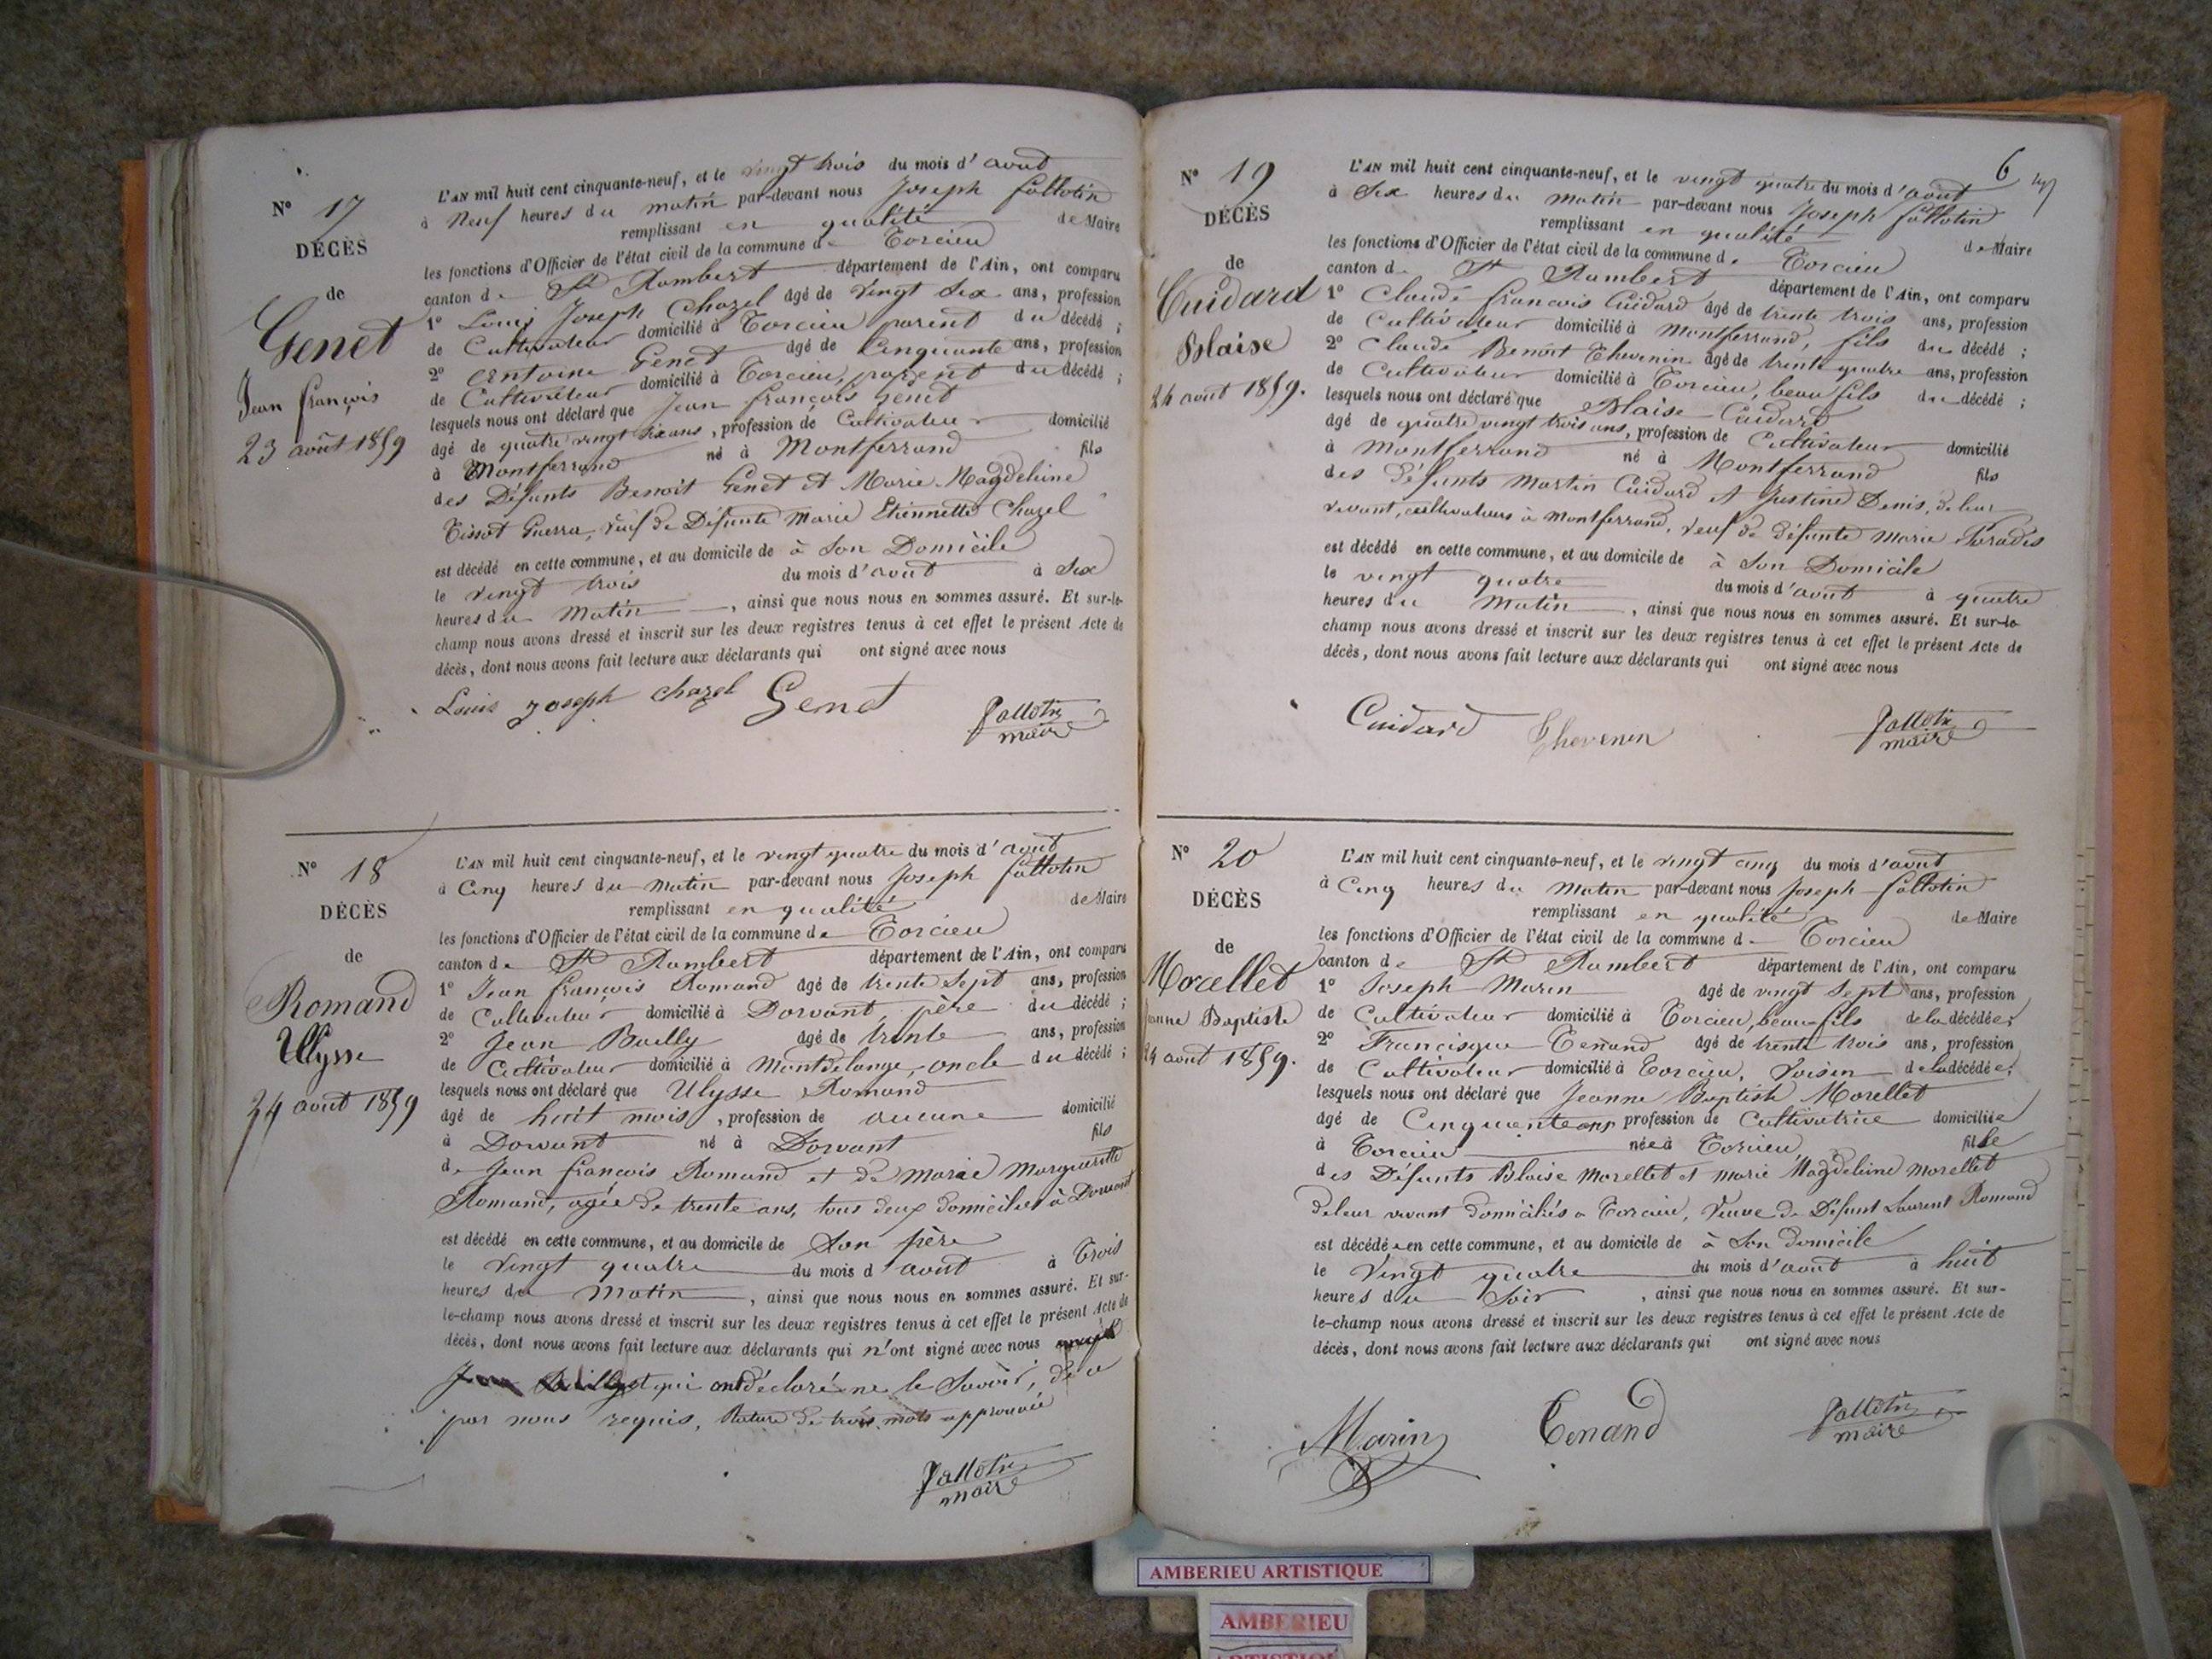 N° 17
DÉCÈS
de
Genet
Jean françois
23 août 1859
L'AN mil huit cent cinquante-neuf, et le vingt trois du mois d'aout
à Neuf heures du matin par-devant nous Joseph fallotin
remplissant en qualité de Maire
les fonctions d'Officier de l'état civil de la commune de Torcieu
canton de St Rambert département de l'Ain, ont comparu
1° Louis Joseph Chazel âgé de Vingt Six ans, profession
de Cultivateur domicilié à Torcieu parent du décédé ;
2° Antoine Genet âgé de Cinquante ans, profession
de Cultivateur domicilié à Torcieu, parent du décédé ;
lesquels nous ont déclaré que Jean françois Genet
âgé de quatre vingt six ans, profession de Cultivateur domicilié
à Montferrand né à Montferrand fils
des Défunts Benoit Genet et Marie Magdeleine
Tissot Guerra, veuf de Défunte Marie Etiennette Chazel
est décédé en cette commune, et au domicile de à Son Domicile
le vingt trois du mois d'aout à Six
heures du Matin, ainsi que nous nous en sommes assuré. Et sur-le-
champ nous avons dressé et inscrit sur les deux registres tenus à cet effet le présent Acte de
décès, dont nous avons fait lecture aux déclarants qui ont signé avec nous
Louis Joseph chazel Genet fallotin
maire
N° 18
DÉCÈS
de
Romand
Ulysse
24 aout 1859
L'AN mil huit cent cinquante-neuf, et le vingt quatre du mois d'aout
à Cinq heures du matin par-devant nous Joseph fallotin
remplissant en qualité de Maire
les fonctions d'Officier de l'état civil de la commune de Torcieu
canton de St Rambert département de l'Ain, ont comparu
1° Jean françois Romand âgé de trente Sept ans, profession
de Cultivateur domicilié à Dorvant, père du décédé ;
2° Jean Bailly âgé de trente ans, profession
de Cultivateur domicilié à Montdelange, oncle du décédé ;
lesquels nous ont déclaré que Ulysse Romand
âgé de huit mois, profession de aucune domicilié
à Dorvant né à Dorvant fils
de Jean françois Romand et de Marie Margueritte
Romand, agée de trente ans, tous deux domiciliés à Dorvant
est décédé en cette commune, et au domicile de Son père
le Vingt quatre du mois d'aout à Trois
heures du Matin, ainsi que nous nous en sommes assuré. Et sur-
le-champ nous avons dressé et inscrit sur les deux registres tenus à cet effet le présent Acte de
décès, dont nous avons fait lecture aux déclarants qui n'ont signé avec nous
qui ont déclaré ne le Savoir, de ce
par nous requis, Rature de trois mots approuvée
fallotin
maire
6
N° 19
DÉCÈS
de
Cuidard
Blaise
24 aout 1859.
L'AN mil huit cent cinquante-neuf, et le vingt quatre du mois d'aout
à Six heures du matin par-devant nous Joseph fallotin
remplissant en qualité de Maire
les fonctions d'Officier de l'état civil de la commune de Torcieu
canton de St Rambert département de l'Ain, ont comparu
1° Claude francois Cuidard âgé de trente trois ans, profession
de Cultivateur domicilié à Montferrand, fils du décédé ;
2° Claude Benoit Thevenin âgé de trente quatre ans, profession
de Cultivateur domicilié à Torcieu, beau fils du décédé ;
lesquels nous ont déclaré que Blaise Cuidard
âgé de quatre vingt trois ans, profession de Cultivateur domicilié
à Montferrand né à Montferrand fils
des Défunts Martin Cuidard et Justine Denis, de leur
vivant, cultivateurs à Montferrand, veuf de défunte Marie
est décédé en cette commune, et au domicile de à Son Domicile
le vingt quatre du mois d'aout à quatre
heures du Matin, ainsi que nous nous en sommes assuré. Et sur-le-
champ nous avons dressé et inscrit sur les deux registres tenus à cet effet le présent Acte de
décès, dont nous avons fait lecture aux déclarants qui ont signé avec nous
Cuidard Thevenin fallotin
maire
N° 20
DÉCÈS
de
Morellet
Jeanne Baptiste
24 aout 1859.
L'AN mil huit cent cinquante-neuf, et le vingt cinq du mois d'aout
à Cinq heures du Matin par-devant nous Joseph fallotin
remplissant en qualité de Maire
les fonctions d'Officier de l'état civil de la commune de Torcieu
canton de St Rambert département de l'Ain, ont comparu
1° Joseph Marin âgé de vingt Sept ans, profession
de Cultivateur domicilié à Torcieu, beau fils de la décédée ;
2° Francisque Tenand âgé de trente trois ans, profession
de Cultivateur domicilié à Torcieu, Voisin de la décédée ;
lesquels nous ont déclaré que Jeanne Baptiste Morellet
âgé de Cinquante ans profession de Cultivatrice domiciliée
à Torcieu née à Torcieu, fille
des Défunts Blaise Morellet et Marie Magdeleine Morellet
de leur vivant domiciliés à Torcieu, Veuve de Défunt Laurent Romand
est décédée en cette commune, et au domicile de à Son domicile
le Vingt quatre du mois d'aout à huit
heures du Soir, ainsi que nous nous en sommes assuré. Et sur-
le-champ nous avons dressé et inscrit sur les deux registres tenus à cet effet le présent Acte de
décès, dont nous avons fait lecture aux déclarants qui ont signé avec nous
Marin Tenand fallotin
maire
AMBERIEU ARTISTIQUE
AMBERIEU
ARTISTIQUE